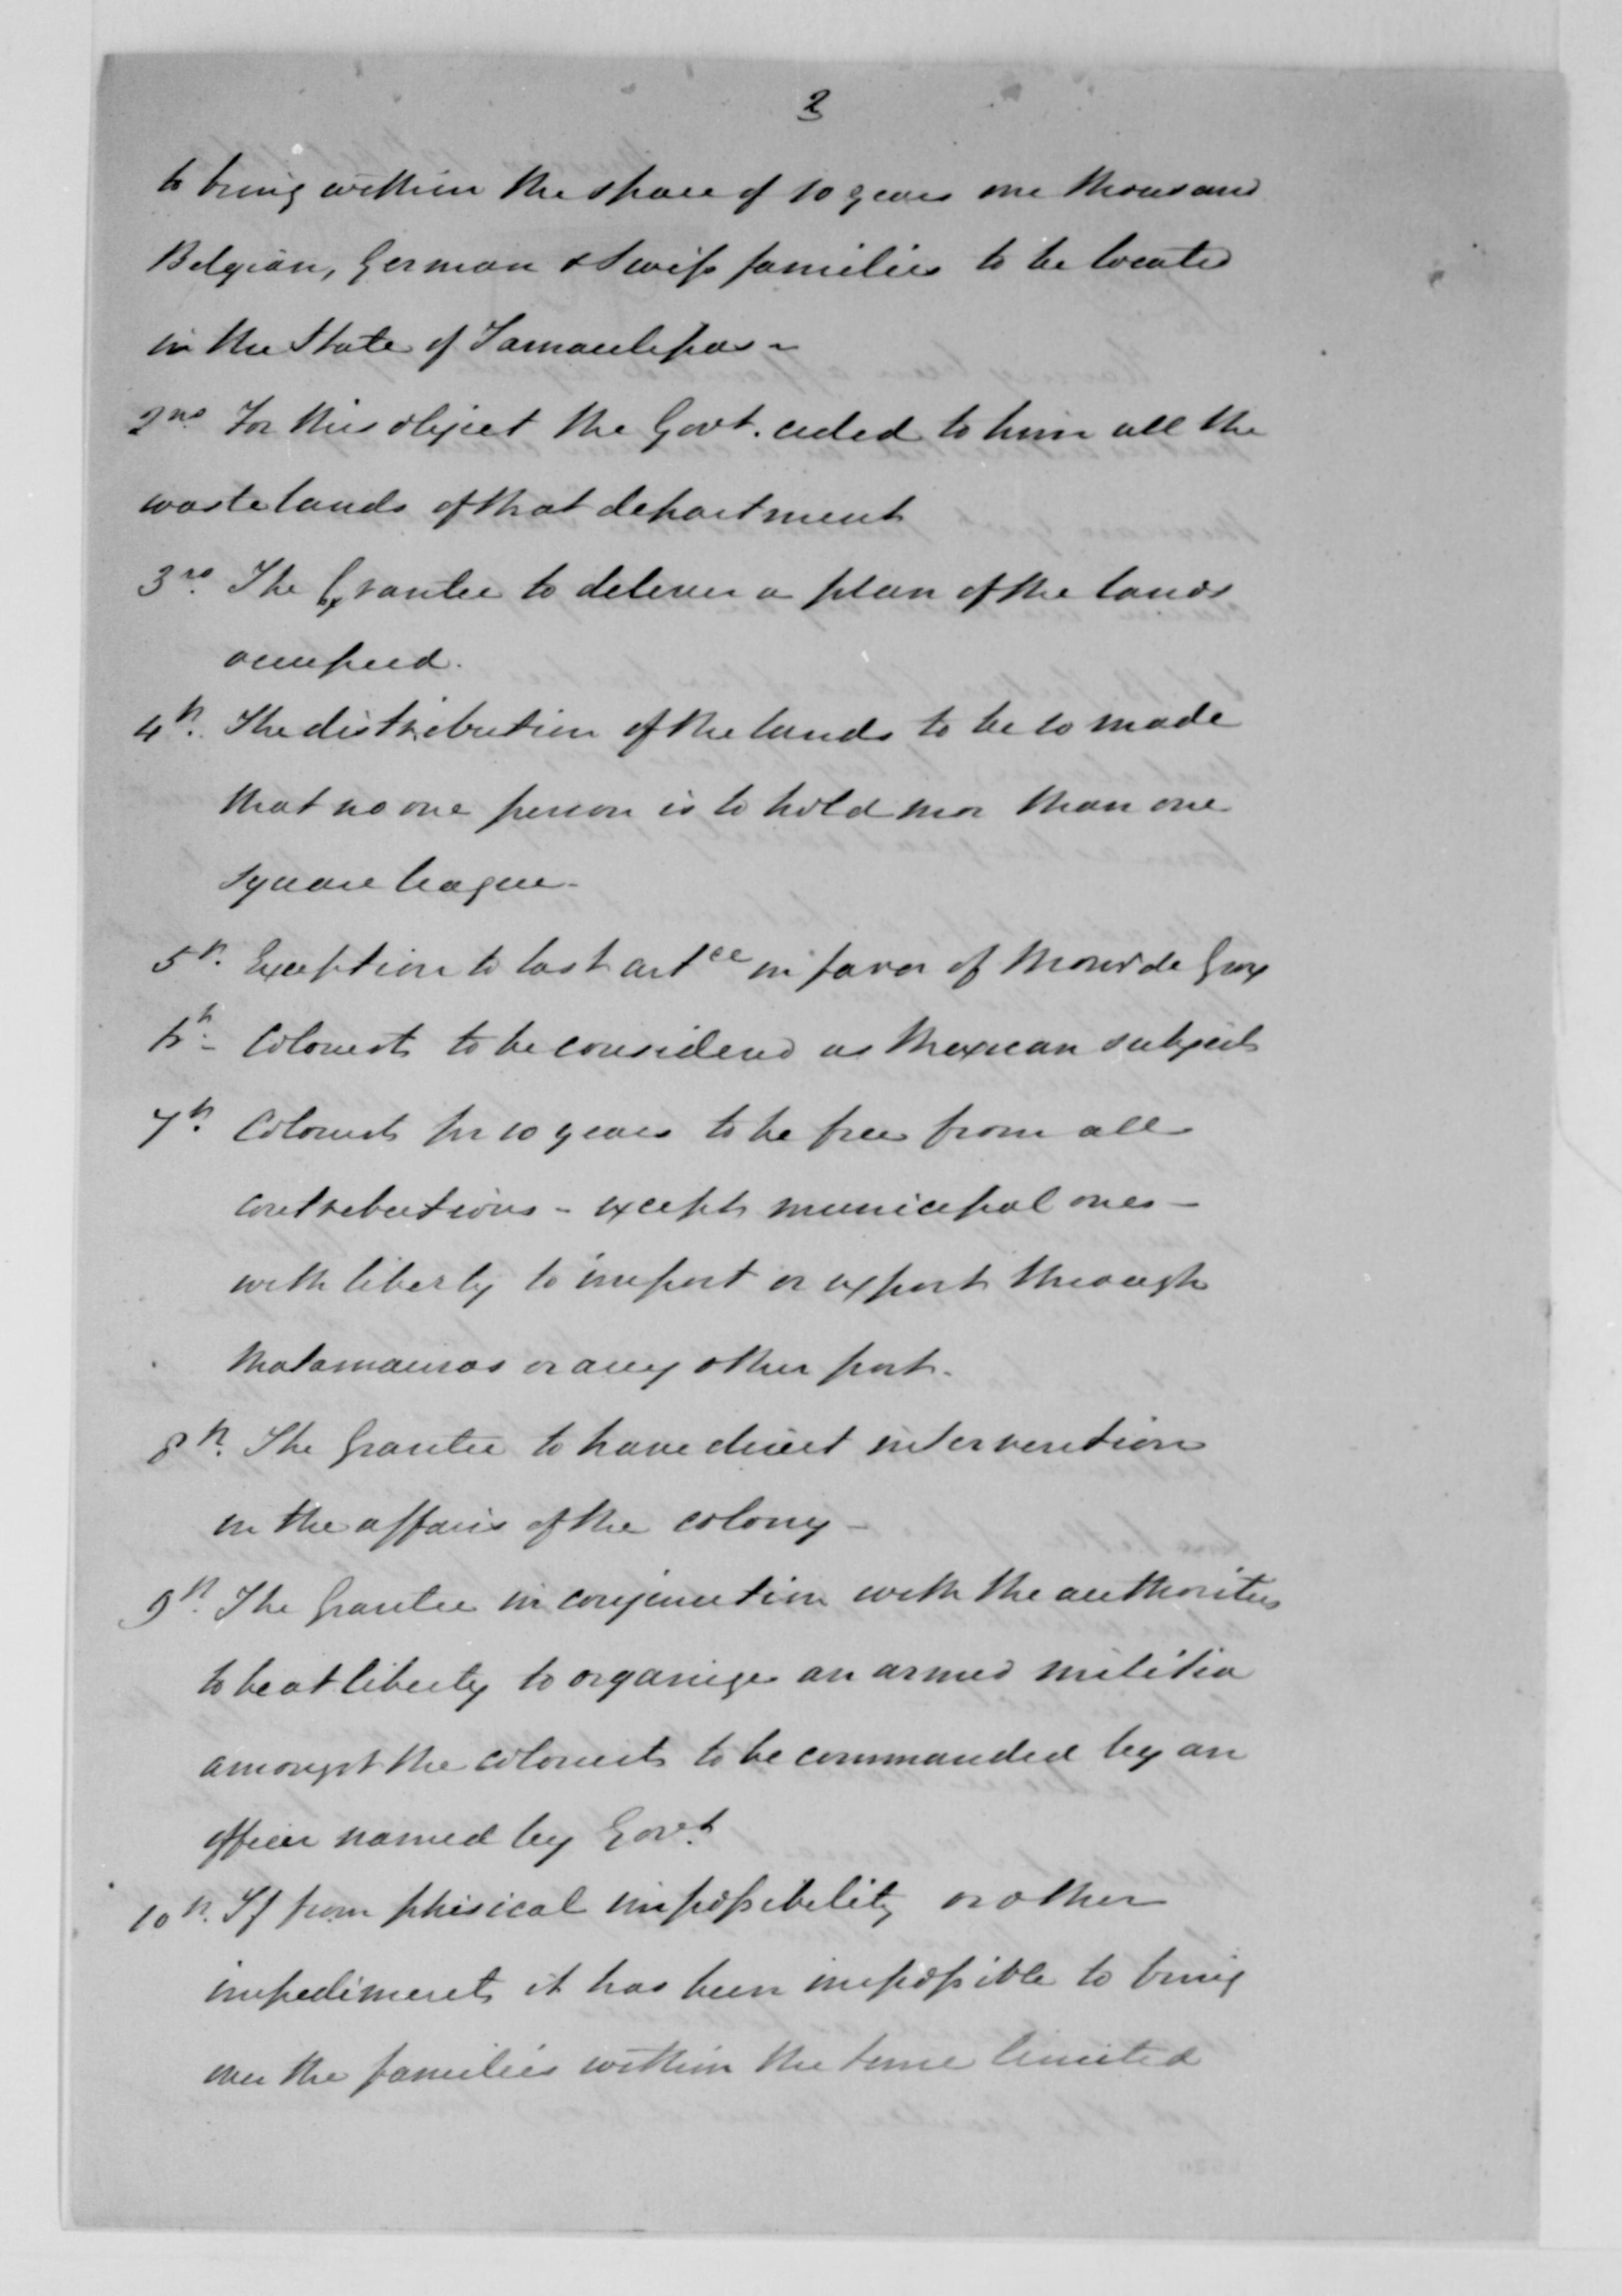 2
to bring within the space of 10 years one thousand
Belgian, German & Swiss families to be located
in the State of Tamaulipas -
2nd. For this object the Govt. ceded to him all the
waste lands of that department
3rd. The Grantee to deliver a plan of the lands
occupied.
4th. The distribution of the lands to be so made
that no one person is to hold more than one
square league -
5th. Exception to last artce in favor of Monsr de Grox
6th - Colonists to be considered as Mexican subjects
7th. Colonists for 10 years to be free from all
contributions - except municipal ones -
with liberty to import or export through
Matamauros or any other port -
8th. The Grantee to have direct intervention
in the affairs of the colony -
9th. The Grantee in conjunction with the authorities
to be at liberty to organize an armed militia
amongst the colonists to be commanded by an
officer named by Govt.
10th. If from phisical impossibility or other
impediment it has been impossible to bring
over the families within the time limited